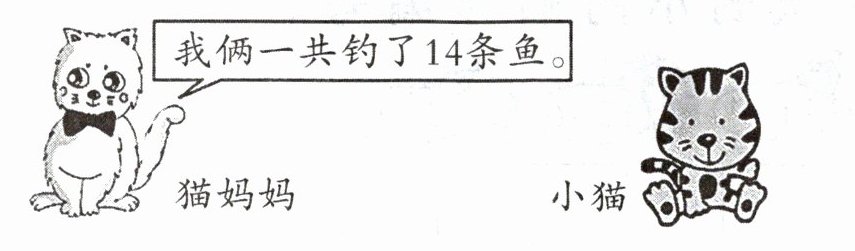 我俩一共钓了14条鱼。
猫妈妈
小猫